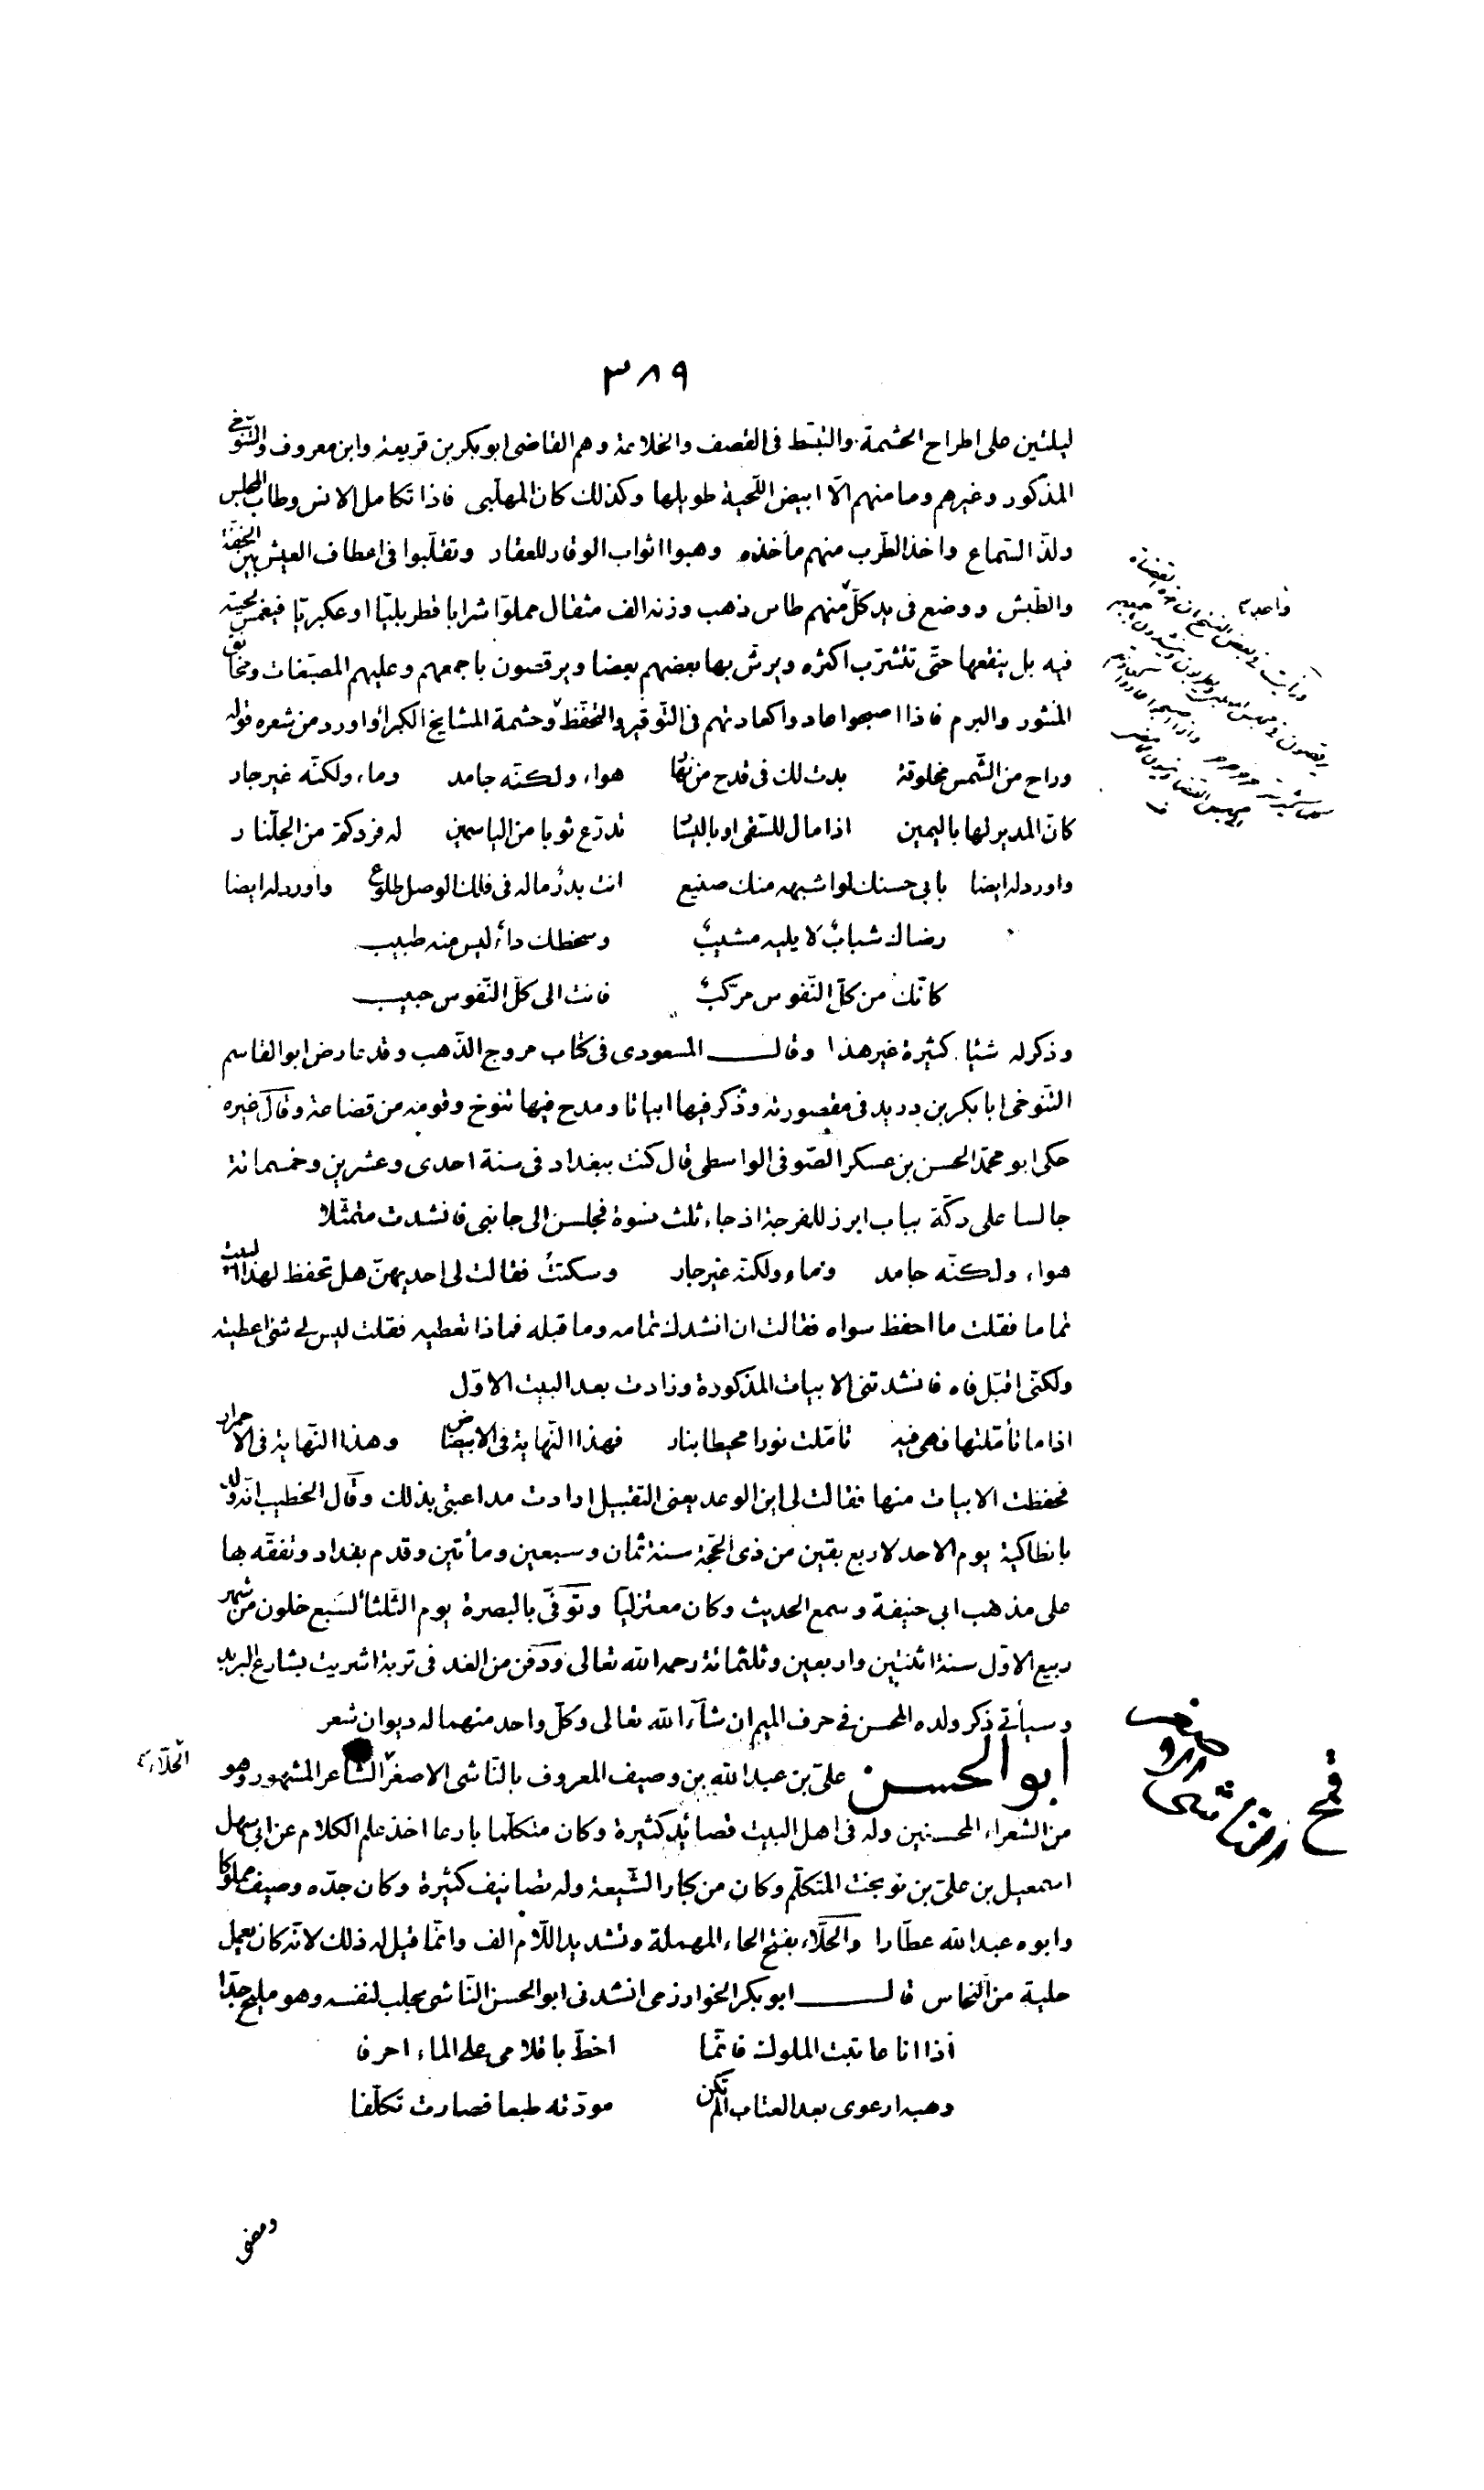 ٣٨٩
ليلتين على اطراح الحشمة والتبسّط فى القصف والخلاعة وهم القاضى ابوبكر بن قريعة وابن معروف والتّنوخى
المذكور وغيرهم وما منهم الّا ابيض اللّحية طويلها وكذلك كان المهلّبى فاذا تكامل الانس وطاب المجلس
ولذّ السّماع واخذ الطّرب منهم مأخذه وهبوا اثواب الوقار للعقار وتقلّبوا فى اعطاف العيش بين الخفّة
والطّيش ووضع فى يد كلّ منهم طاس ذهب وزنه الف مثقال مملوّا شرابا قطربليّا او عكبريّا فيغمس لحيته
فيه بل ينقعها حتّى تتشرّب اكثره ويرشّ بها بعضهم بعضا ويرقصون باجمعهم وعليهم المصبّغات ومخانق
المنثور والبرم فاذا اصبحوا عادوا كعادتهم فى التّوقير والتّحفّظ وحشمة المشايخ الكبرأ واورد من شعره قوله
وراح من الشّمس مخلوقة بدت لك فى قدح من نهار هواء ولكنّه جامد وماء ولكنّه غير جار
كانّ المدير لها باليمين اذا مال للسّقى او باليسار تدرّع ثوبا من الياسمين له فرد كمّ من الجلّنار
واورد له ايضا بابى حسنك لو اشبهه منك صنيع انت بدرٌ ماله فى فلك الوصل طلوع واورد له ايضا
رضاك شبابٌ لا يليه مشيبٌ وسخطك داءٌ ليس منه طبيب
كانّك من كلّ النّفوس مركّبٌ فانت الى كلّ النّفوس حبيب
وذكر له شيئا كثيرة غير هذا وقال المسعودى فى كتاب مروج الذّهب وقد عارض ابو القاسم
التّنوخى ابابكر بن دريد فى مقصورته وذكر فيها ابياتا ومدح فيها تنوخ وقومه من قضاعة وقال غيره
حكى ابو محمّد الحسن بن عسكر الصّوفى الواسطى قال كنت ببغداد فى سنة احدى وعشرين وخمسمائة
جالسا على دكّة بباب ابرز للفرجة اذ جاء ثلث نسوة فجلسن الى جانبى فانشدت متمثّلا
هواء ولكنّه جامد وماء ولكنّه غير جار وسكتُّ فقالت لى احديهنّ هل تحفظ لهذا البيت
تماما فقلت ما احفظ سواه فقالت ان انشدك تمامه وما قبله فماذا تعطيه فقلت ليس لى شئ اعطيته
ولكنّى اقبّل فاه فانشدتنى الابيات المذكورة وزادت بعد البيت الاوّل
اذا ما تأمّلتها فهى فيه تأمّلت نورا محيطا بنار فهذا النّهاية فى الابيضاض وهذا النّهاية فى الاحمرار
فحفظت الابيات منها فقالت لى اين الوعد يعنى التقبيل ارادت مداعبتى بذلك وقال الخطيب انّه ولد
بانطاكية يوم الاحد لاربع بقين من ذى الحجّة سنة ثمان وسبعين ومأتين وقدم بغداد وتفقّه بها
على مذهب ابى حنيفة وسمع الحديث وكان معتزليّا وتوفّى بالبصرة يوم الثّلثأ لسبع خلون من شهر
ربيع الاوّل سنة اثنتين واربعين وثلثمائة رحمه الله تعالى ودفن من الغد فى تربة اشريت بشارع المربد
وسيأتى ذكر ولده المحسن فى حرف الميم ان شآء الله تعالى وكلّ واحد منهما له ديوان شعر
ابو الحسن علىّ بن عبد الله بن وصيف المعروف بالنّاشى الاصغر الشّاعر المشهور وهو
الحلّاء
من الشعراء المحسنين وله فى اهل البيت قصائد كثيرة وكان متكلّما بارعا اخذ علم الكلام عن ابى سهل
اسمعيل بن علىّ بن نوبخت المتكلّم وكان من كبار الشّيعة وله تصانيف كثيرة وكان جدّه وصيف مملوكا
وابوه عبد الله عطّارا والحلّاء بفتح الحاء المهملة وتشديد اللّام الف وانّما قيل له ذلك لانّه كان يعمل
حلية من النّحاس قال ابوبكر الخوارزمى انشدنى ابو الحسن النّاشى بحلب لنفسه وهو مليح جدّا
اذا انا عاتبت الملوك فانّما اخطّ باقلامى على الماء احرفا
وهبه ارعوى بعد العتاب الم تكن مودّته طبعا فصارت تكلّفا
ومضى